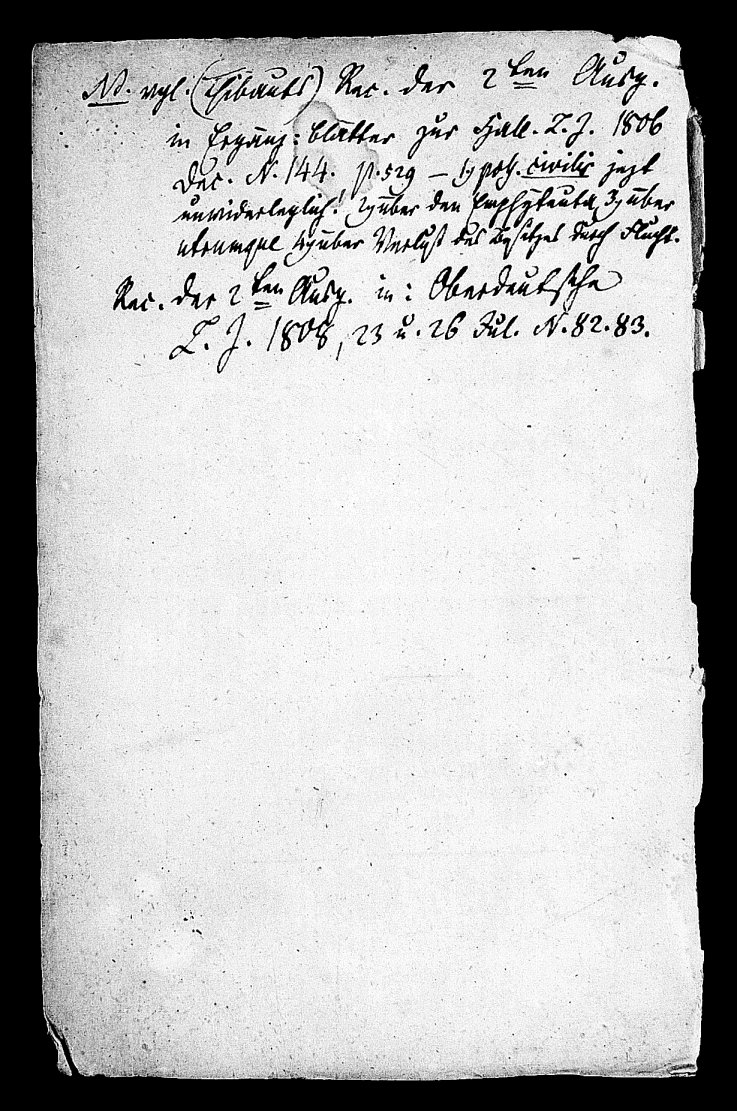 NB. vgl. (Thibauts) Rec. der 2ten Ausg.
in Ergänz: blätter zur Hall. L. Z. 1806
Dec. N. 144. p. 529 — 1) poss. civilis jezt
unwiderleglich! 2) über den Emphyteuta 3) über
utrumque 4) über Verlust des Besitzes durch Flucht.
Rec. der 2ten Ausg. in: Oberdeutsche
L. Z. 1808, 23 u. 26 Jul. N. 82. 83.